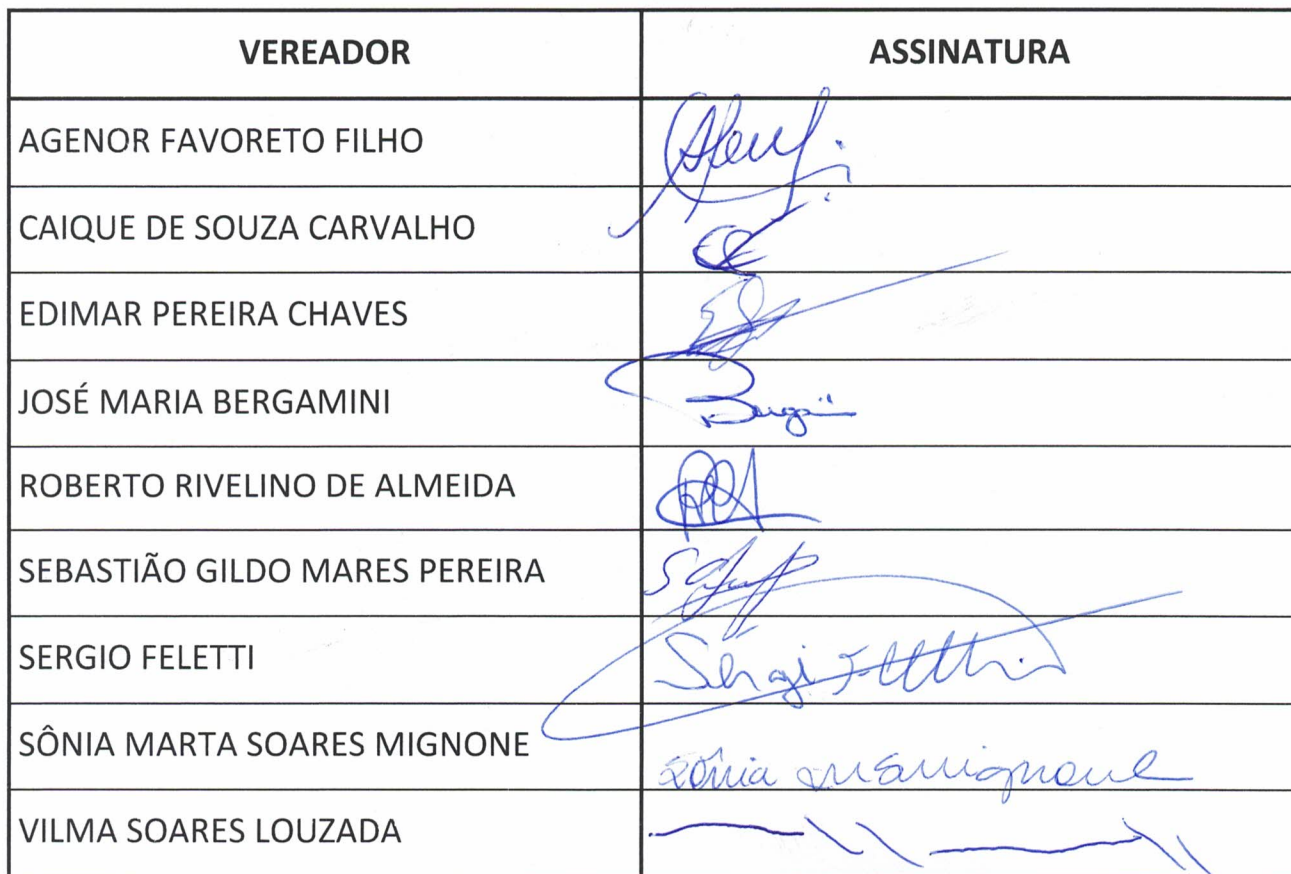 VEREADOR ASSINATURA
AGENOR FAVORETO FILHO
CAIQUE DE SOUZA CARVALHO
EDIMAR PEREIRA CHAVES
JOSÉ MARIA BERGAMINI
ROBERTO RIVELINO DE ALMEIDA
SEBASTIÃO GILDO MARES PEREIRA
SERGIO FELETTI Sérgi
SÔNIA MARTA SOARES MIGNONE Sônia
VILMA SOARES LOUZADA